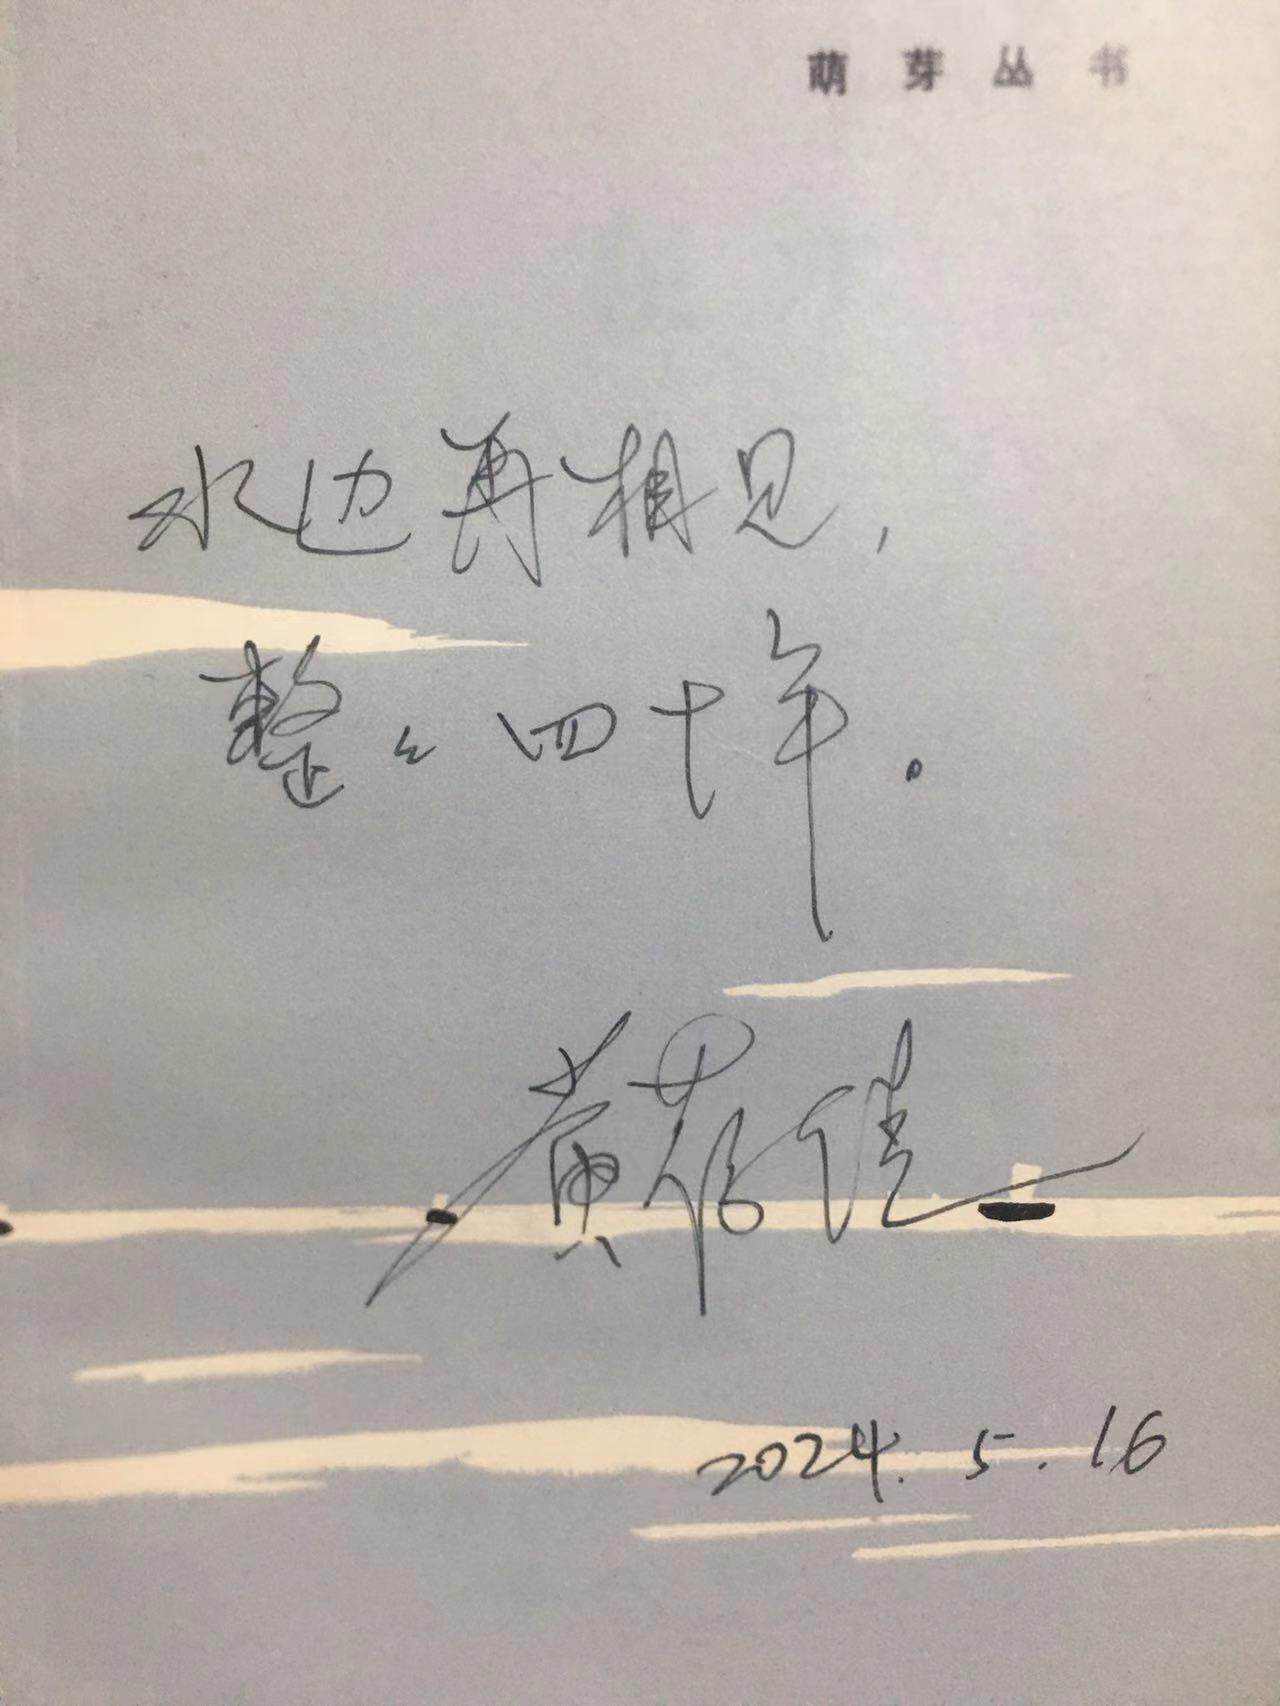 萌芽丛书
水边再相见，
整々四十年。
黄蓓佳
2024.5.16